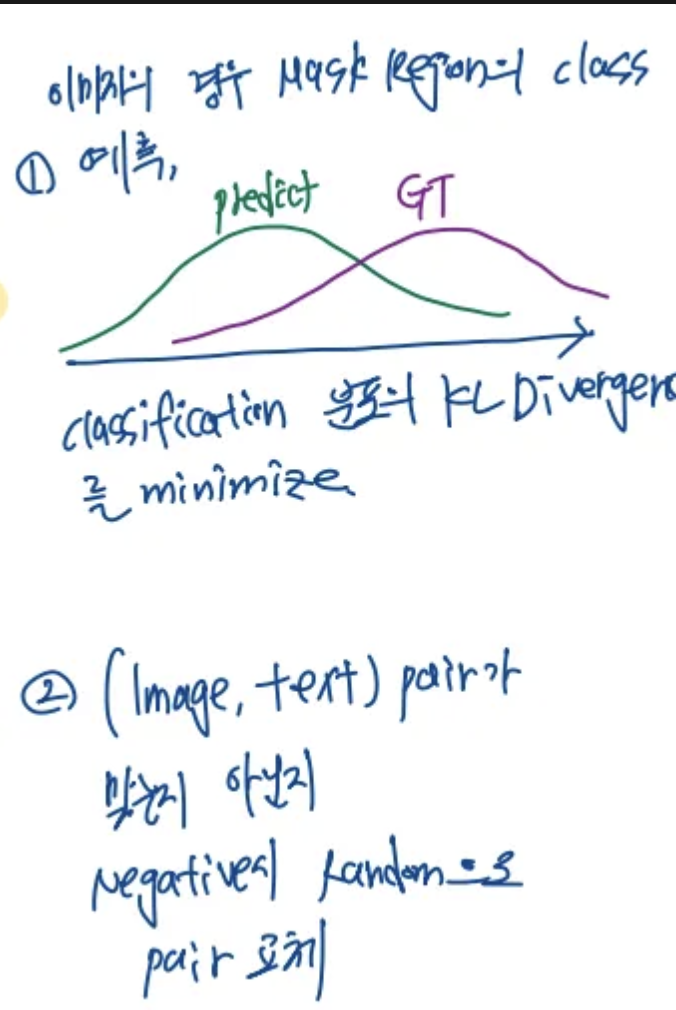 이미지의 경우 Mask Region의 class
① 예측,
predict GT
classification 분포의 KL Divergenc
를 minimize
② (Image, text) pair가
맞는지 아닌지
Negative시 Random으로
pair 교체